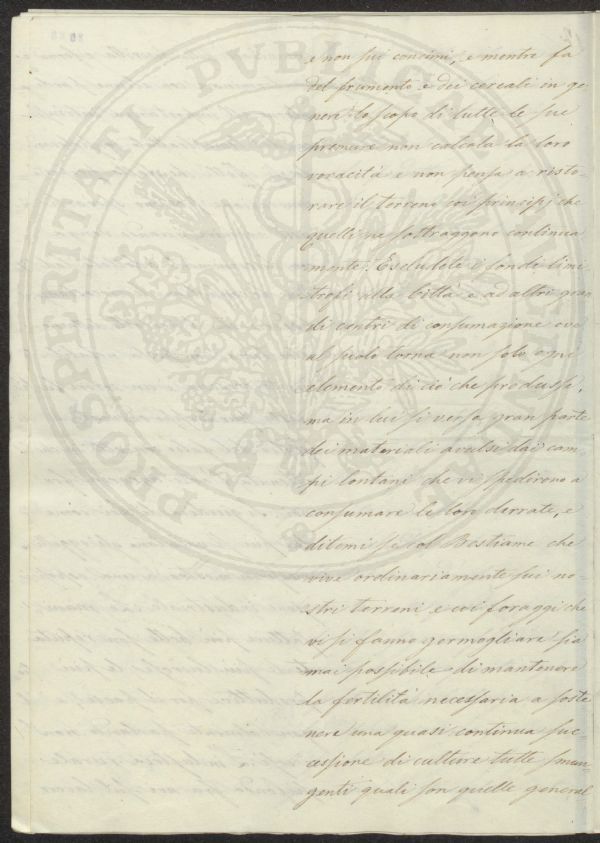 e non sui concimi; e mentre fa
del frumento e dei cereali in ge
nere lo scopo di tutte le sue
premure non calcola la loro
voracità e non pensa a risto-
rare il terreno coi principj che
quelli ne sottraggono continua
mente. Escludete i fondi limi
trofi alla Città e ad altri gran
di centri di consumazione ove
al suolo torna non solo ogni
elemento di ciò che produsse,
ma in lui si versa gran parte
dei materiali avulsi dai cam
pi lontani che vi spedirono a
consumare le loro derrate, e
ditemi se col Bestiame che
vive ordinariamente sui no-
stri terreni e coi foraggi che
vi si fanno germogliare sia
mai possibile di mantenere
la fertilità necessaria a soste
nere una quasi continua suc
cessione di culture tutte smun
genti quali son quelle general
PROSPERITATI PUBLICAE